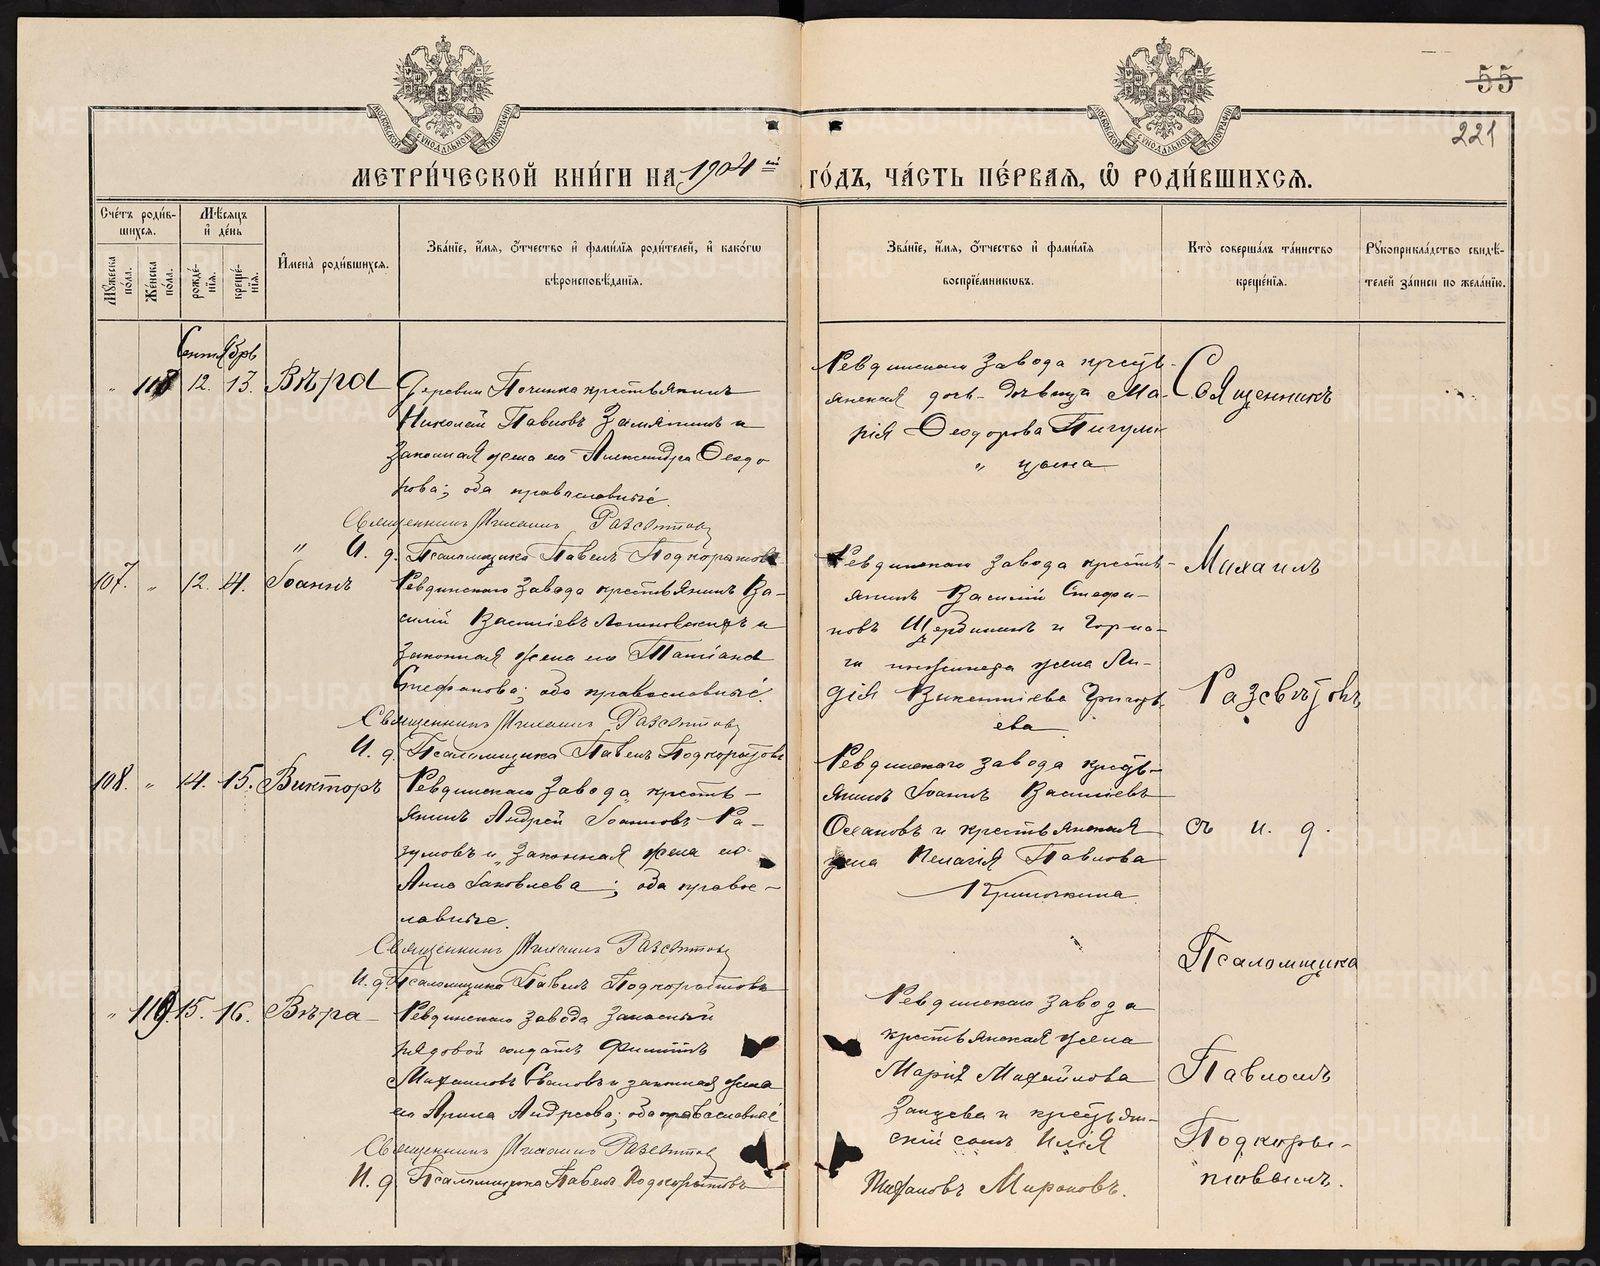 55
221
МЕТРИ́ЧЕСКОЙ КНИ́ГИ НА 1904й ГО́ДЪ, ЧА́СТЬ ПЕ́РВАЯ, Ѡ РОДИ́ВШИХСЯ.
Сче́тъ роди́в-
шихся.
Мꙋжеска по́ла.
Же́нска по́ла.
Мѣ́сяцъ
и҆ де́нь
рожде́-
нїя.
креще́-
нїя.
И҆мена̀ роди́вшихся.
Зва́нїе, и҆́мя, ѻ҆́тчество и҆ фами́лїя роди́телей, и҆ како́гѡ
вѣроисповѣ́данїя.
Зва́нїе, и҆́мя, ѻ҆́тчество и҆ фами́лїя
воспрїе́мникѡвъ.
Кто̀ соверша́лъ та́инство
креще́нїя.
Рꙋкоприкла́дство свидѣ́-
телей за́писи по жела́нїю.
Сентябрь
" 118 12. 13. Вѣра
Деревни Починка крестьянинъ
Николай Павловъ Замятинъ и
законная жена его Александра Ѳеодо
рова; оба православные
Священникъ Михаилъ Разсвѣтовъ
И. д. Псаломщика Павелъ Подкорытовъ
Ревдинскаго завода кресть-
янская дочь дѣвица Ма-
рія Ѳеодорова
107. " 12. 14. Іоаннъ
Ревдинскаго завода крестьянинъ Ва-
силій Васильевъ и
законная жена его Татіана
Стефанова; оба православные
Священникъ Михаилъ Разсвѣтовъ
И. д. Псаломщика Павелъ Подкорытовъ
Ревдинскаго завода кресть-
янинъ Василій Стефа-
новъ Щербининъ и Горна-
го инженера жена Ли-
дія Викентіева Григорь-
ева
108. " 14. 15. Викторъ
Ревдинскаго завода кресть-
янинъ Андрей Іоанновъ Ра-
зумовъ и законная жена его
Анна Іаковлева; оба правос-
лавные.
Священникъ Михаилъ Разсвѣтовъ
И. д. Псаломщика Павелъ Подкорытовъ
Ревдинскаго завода кресть-
янинъ Іоаннъ Васильевъ
и крестьянская
жена Пелагія Павлова
" 119. 15. 16. Вѣра
Ревдинскаго завода запасный
рядовой солдатъ Филиппъ
Михаиловъ и законная жена
его Арина Андреева; оба православные
Священникъ Михаилъ Разсвѣтовъ
И. д. Псаломщика Павелъ Подкорытовъ
Ревдинскаго завода
крестьянская жена
Марія Михайлова
Зайцева и крестьян-
скій сынъ Илія
Мироновъ.
Священникъ
Михаилъ
Разсвѣтовъ
съ и. д.
Псаломщика
Павломъ
Подкоры-
товымъ.